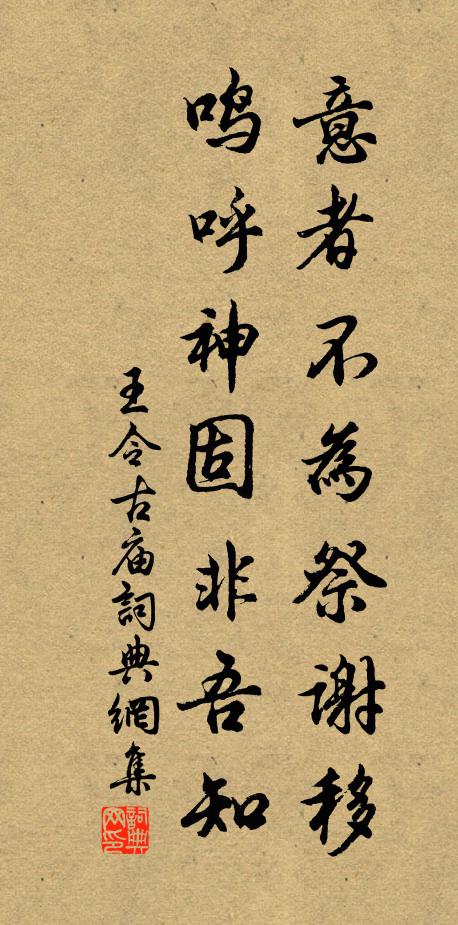 意者不為祭謝移
鳴呼神固非吾知
王令古庙詞典網集
詞典网印